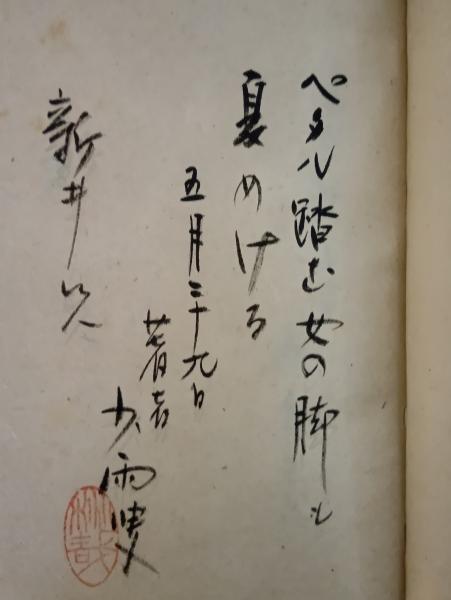 ペタル踏む女の脚も
夏めける
五月二十九日
著者
少雨叟
新井兄